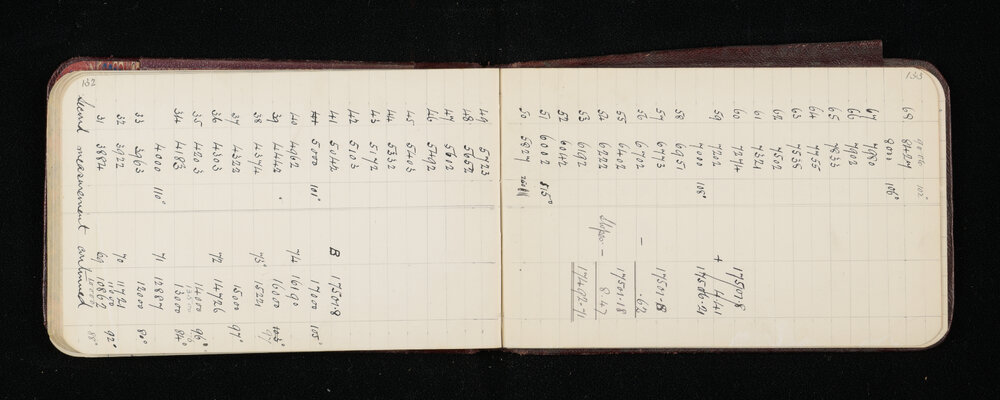 132
Second measurement continued
31 3884 69 10862 88°
32 3922 70 11721 92°
33 3963 12000 80°
4000 110° 71 12887
34 4183 13000 84°
35 4203 14000 96°
36 4303 72 14726
37 4322 15000 97°
38 4374 73 15221
39 4442 16000 103°
40 4962 74 16190
5000 101° 17000 105°
41 5042 B 17507.8
42 5103
43 5172
44 5332
45 5403
46 5492
47 5612
48 5652
49 5723
133
50 5827
51 6002 85°
52 6042
53 6192 Slope —
54 6222 17492.71
55 6402 8.47
56 6702 17501.18
57 6773 — .62
58 6951 17501.8
7000 108°
59 7202 17506.21
60 7274 + 4.41
61 7321 17507.8
62 7502
63 7535
64 7755
65 7833
66 7902
67 7980
8000 106°
68 8424 102°